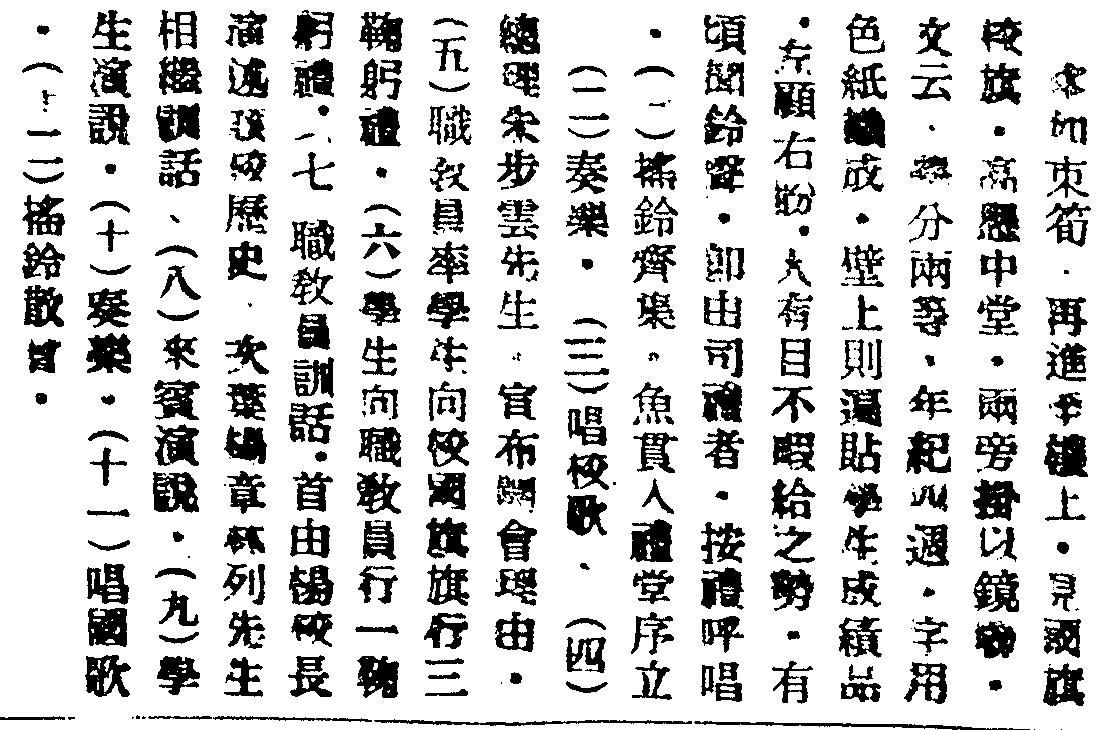 束筍．再進半樓上．見國旗
校旗．高懸中堂．兩旁掛以鏡物．
文云．分兩等．年紀四週．字用
色紙織成．壁上則遍貼學生成績品
．左顧右盼．大有目不暇給之勢．有
頃聞鈴聲．卽由司禮者．按禮呼唱
．（一）搖鈴齊集．魚貫入禮堂序立
（二）奏樂．（三）唱校歌、（四）
總理朱步雲先生．宣布開會理由．
（五）職敎員率學生向校國旗旗行三
鞠躬禮．（六）學生向職敎員行一鞠
躬禮．（七 職敎員訓話．首由楊校長
演述該校歷史．次葉楊章林列先生
相繼訓話、（八）來賓演說．（九）學
生演說．（十）奏樂．（十一）唱國歌
．（十二）搖鈴散會．